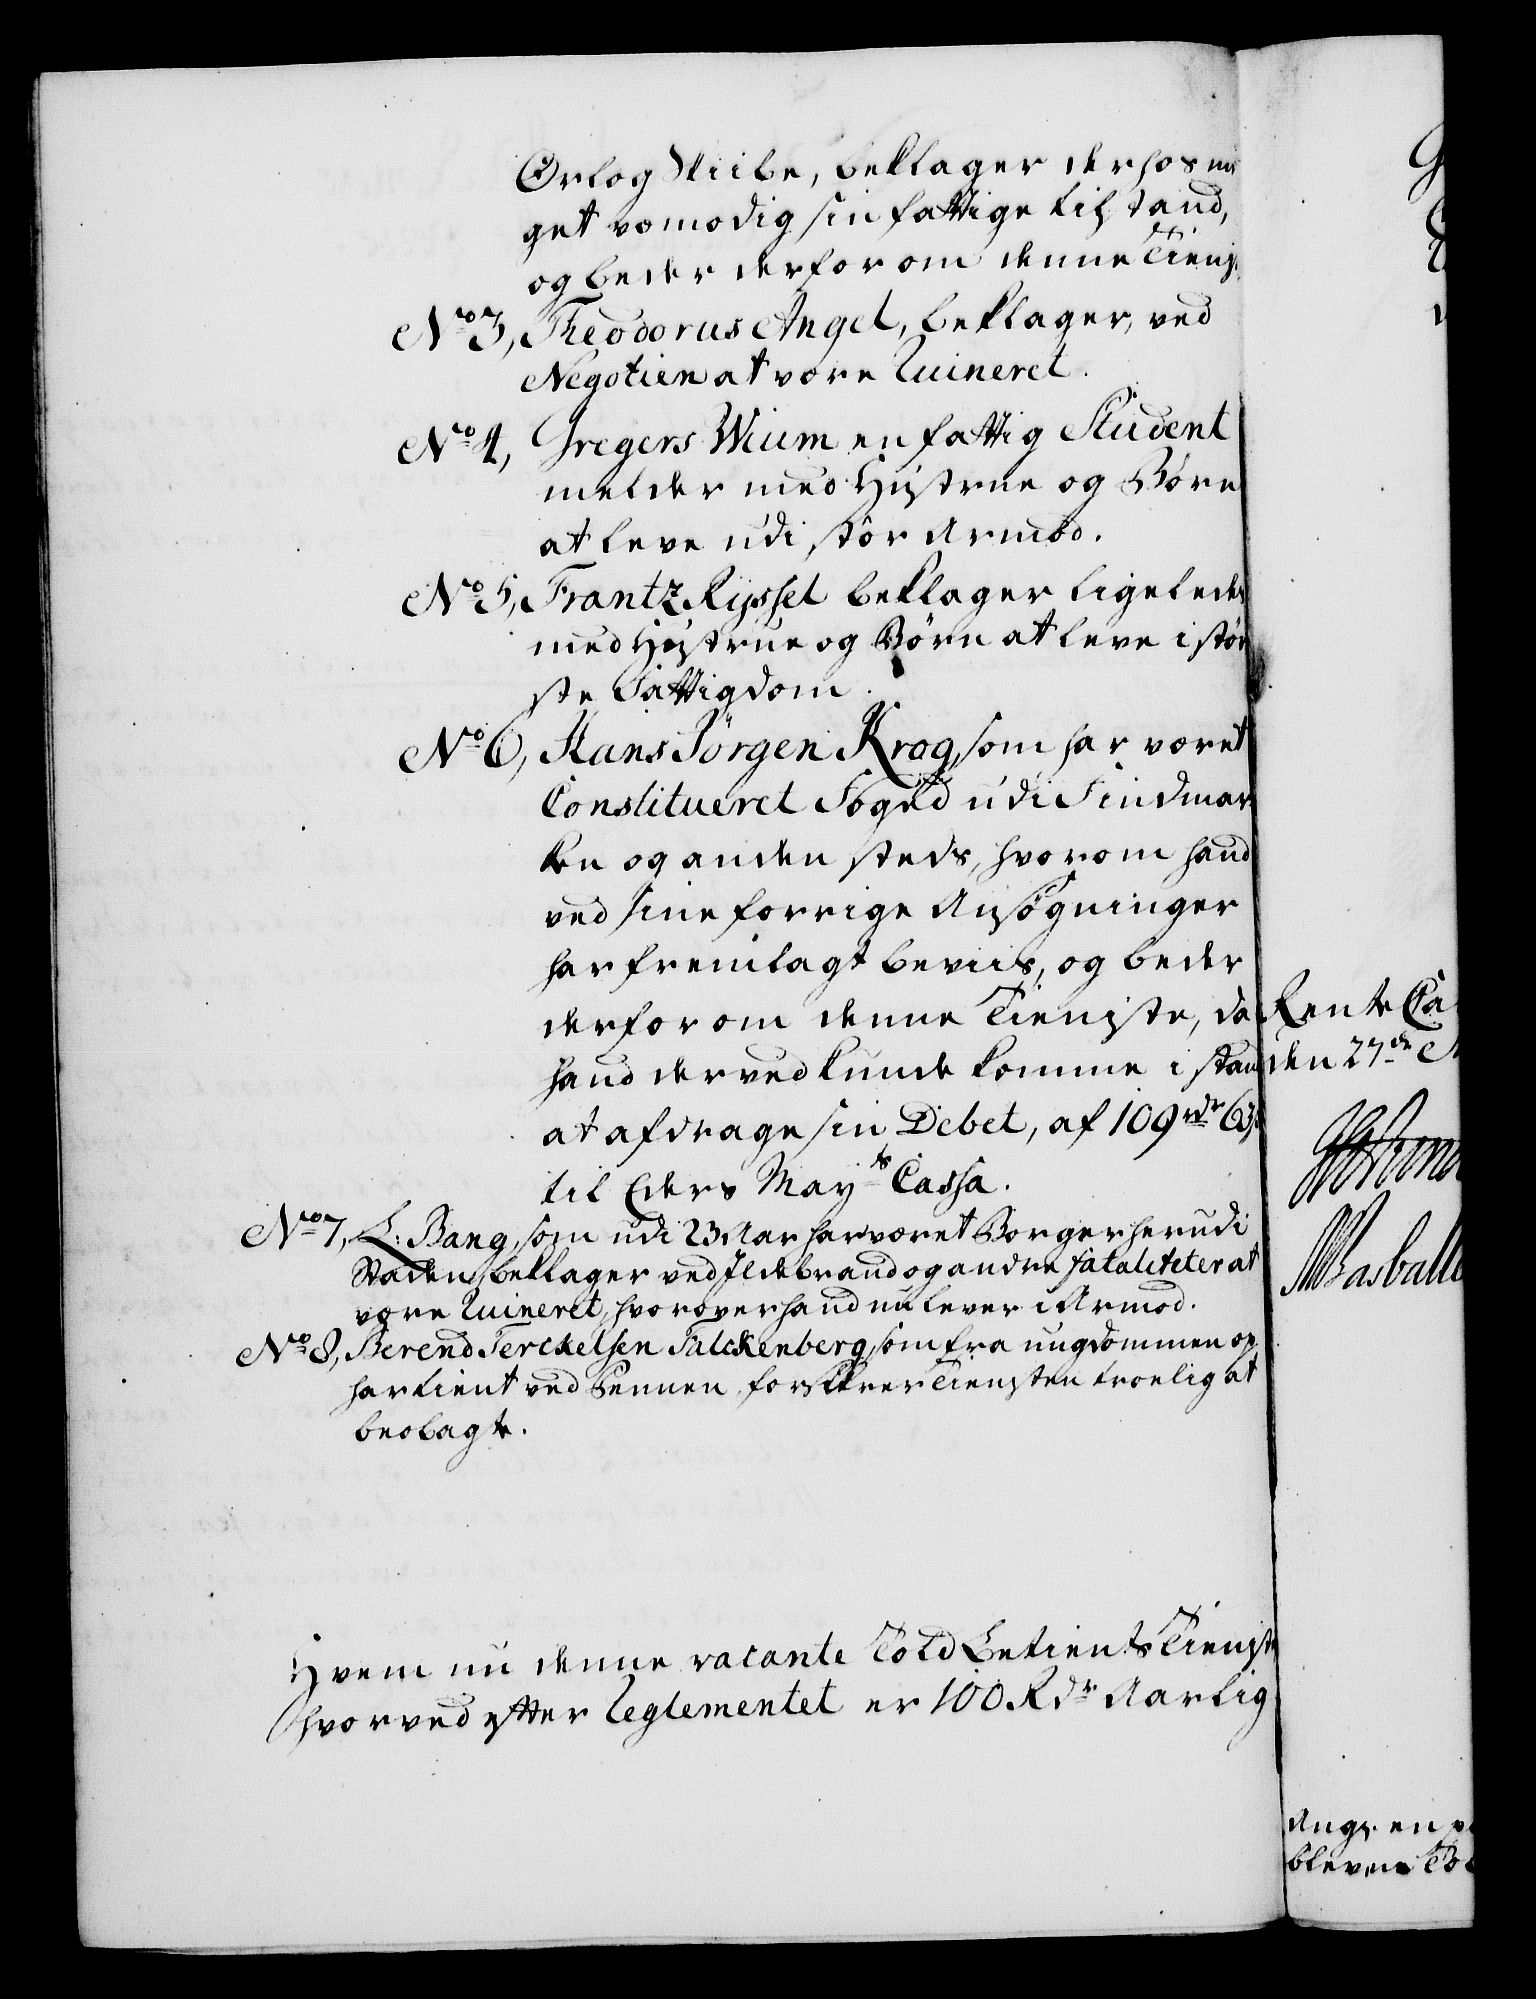 Orlog Skibe, beklager derhos me
get vemodig sin fattige tilstand,
og beder derfor om denne Tienst
No 3, Theodorus Angel, beklager, ved
Negotien at være Ruineret.
No 4, Gregers Wium en fattig Student
melder med Hustrue og Børn
at leve udi stor Armod.
No 5, Frantz Rijssel beklager ligeledes
med Hustrue og Børn at leve i stør
ste Fattigdom.
No 6, Hans Jörgen Krog, som har været
Constitueret Foged udi Findmar
ken og anden steds, hvorom hand
ved sine forrige Ansøgninger
har fremlagt beviis, og beder
derfor om denne Tieneste, da
hand derved kunde komme i stand
at afdrage sin Debet, af 109 rdr 63
til Eders Mayts Cassa.
No 7, L: Bang, som udi 23 Aar har været Borger her udi
Staden, beklager ved Ildebrand og andre fataliteter at
være Ruineret, hvorover hand nu lever i Armod.
No 8, Berend Terckelsen Falckenberg, som fra ungdommen op
har tient ved Pennen, forsikrer Tiensten troelig at
beobagte.
Hvem nu denne vacante Told Betients Tienste
hvorved efter Reglementet er 100 Rdr Aarlig
Rente Ca
den 27de
bleven Tol